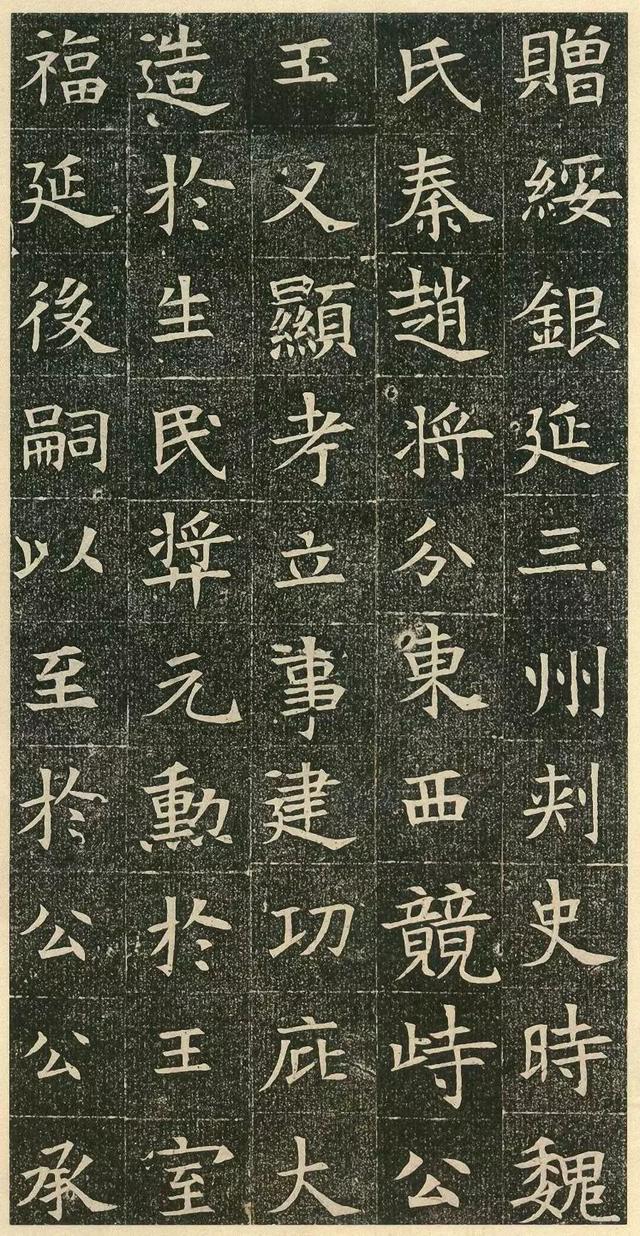 贈綏銀延三州刾史時魏
氏秦趙将分東西競峙公
王又顯考立事建功庇大
造於生民弉元勳於王室
福延後嗣以至於公公承